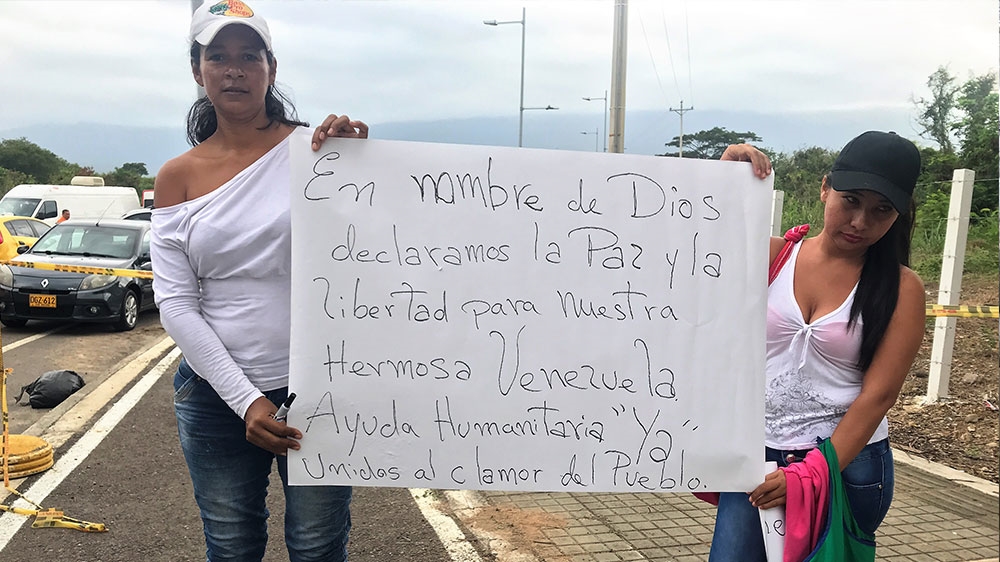 En nombre de Dios
declaramos la Paz y la
libertad para nuestra
Hermosa Venezuela
Ayuda Humanitaria "Ya"
Unidos al clamor del Pueblo.
DGZ-612